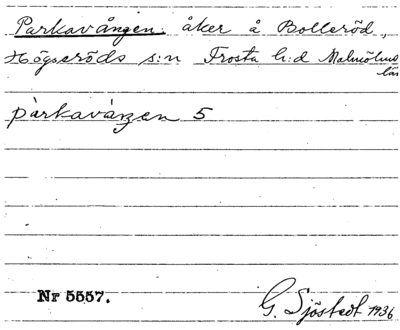 Parkavången: åker å Bolleröd,
Högseröds s:n Frosta h:d Malmöhus
län
pàrkavåŋen 5
Nr 5557.
G. Sjöstedt 1936